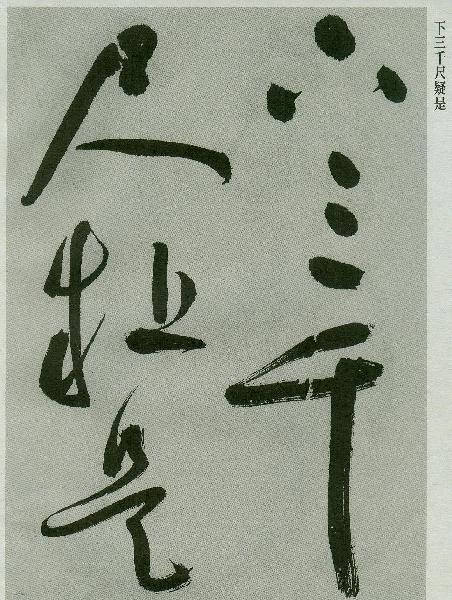 下三千尺疑是
下三千
尺疑是